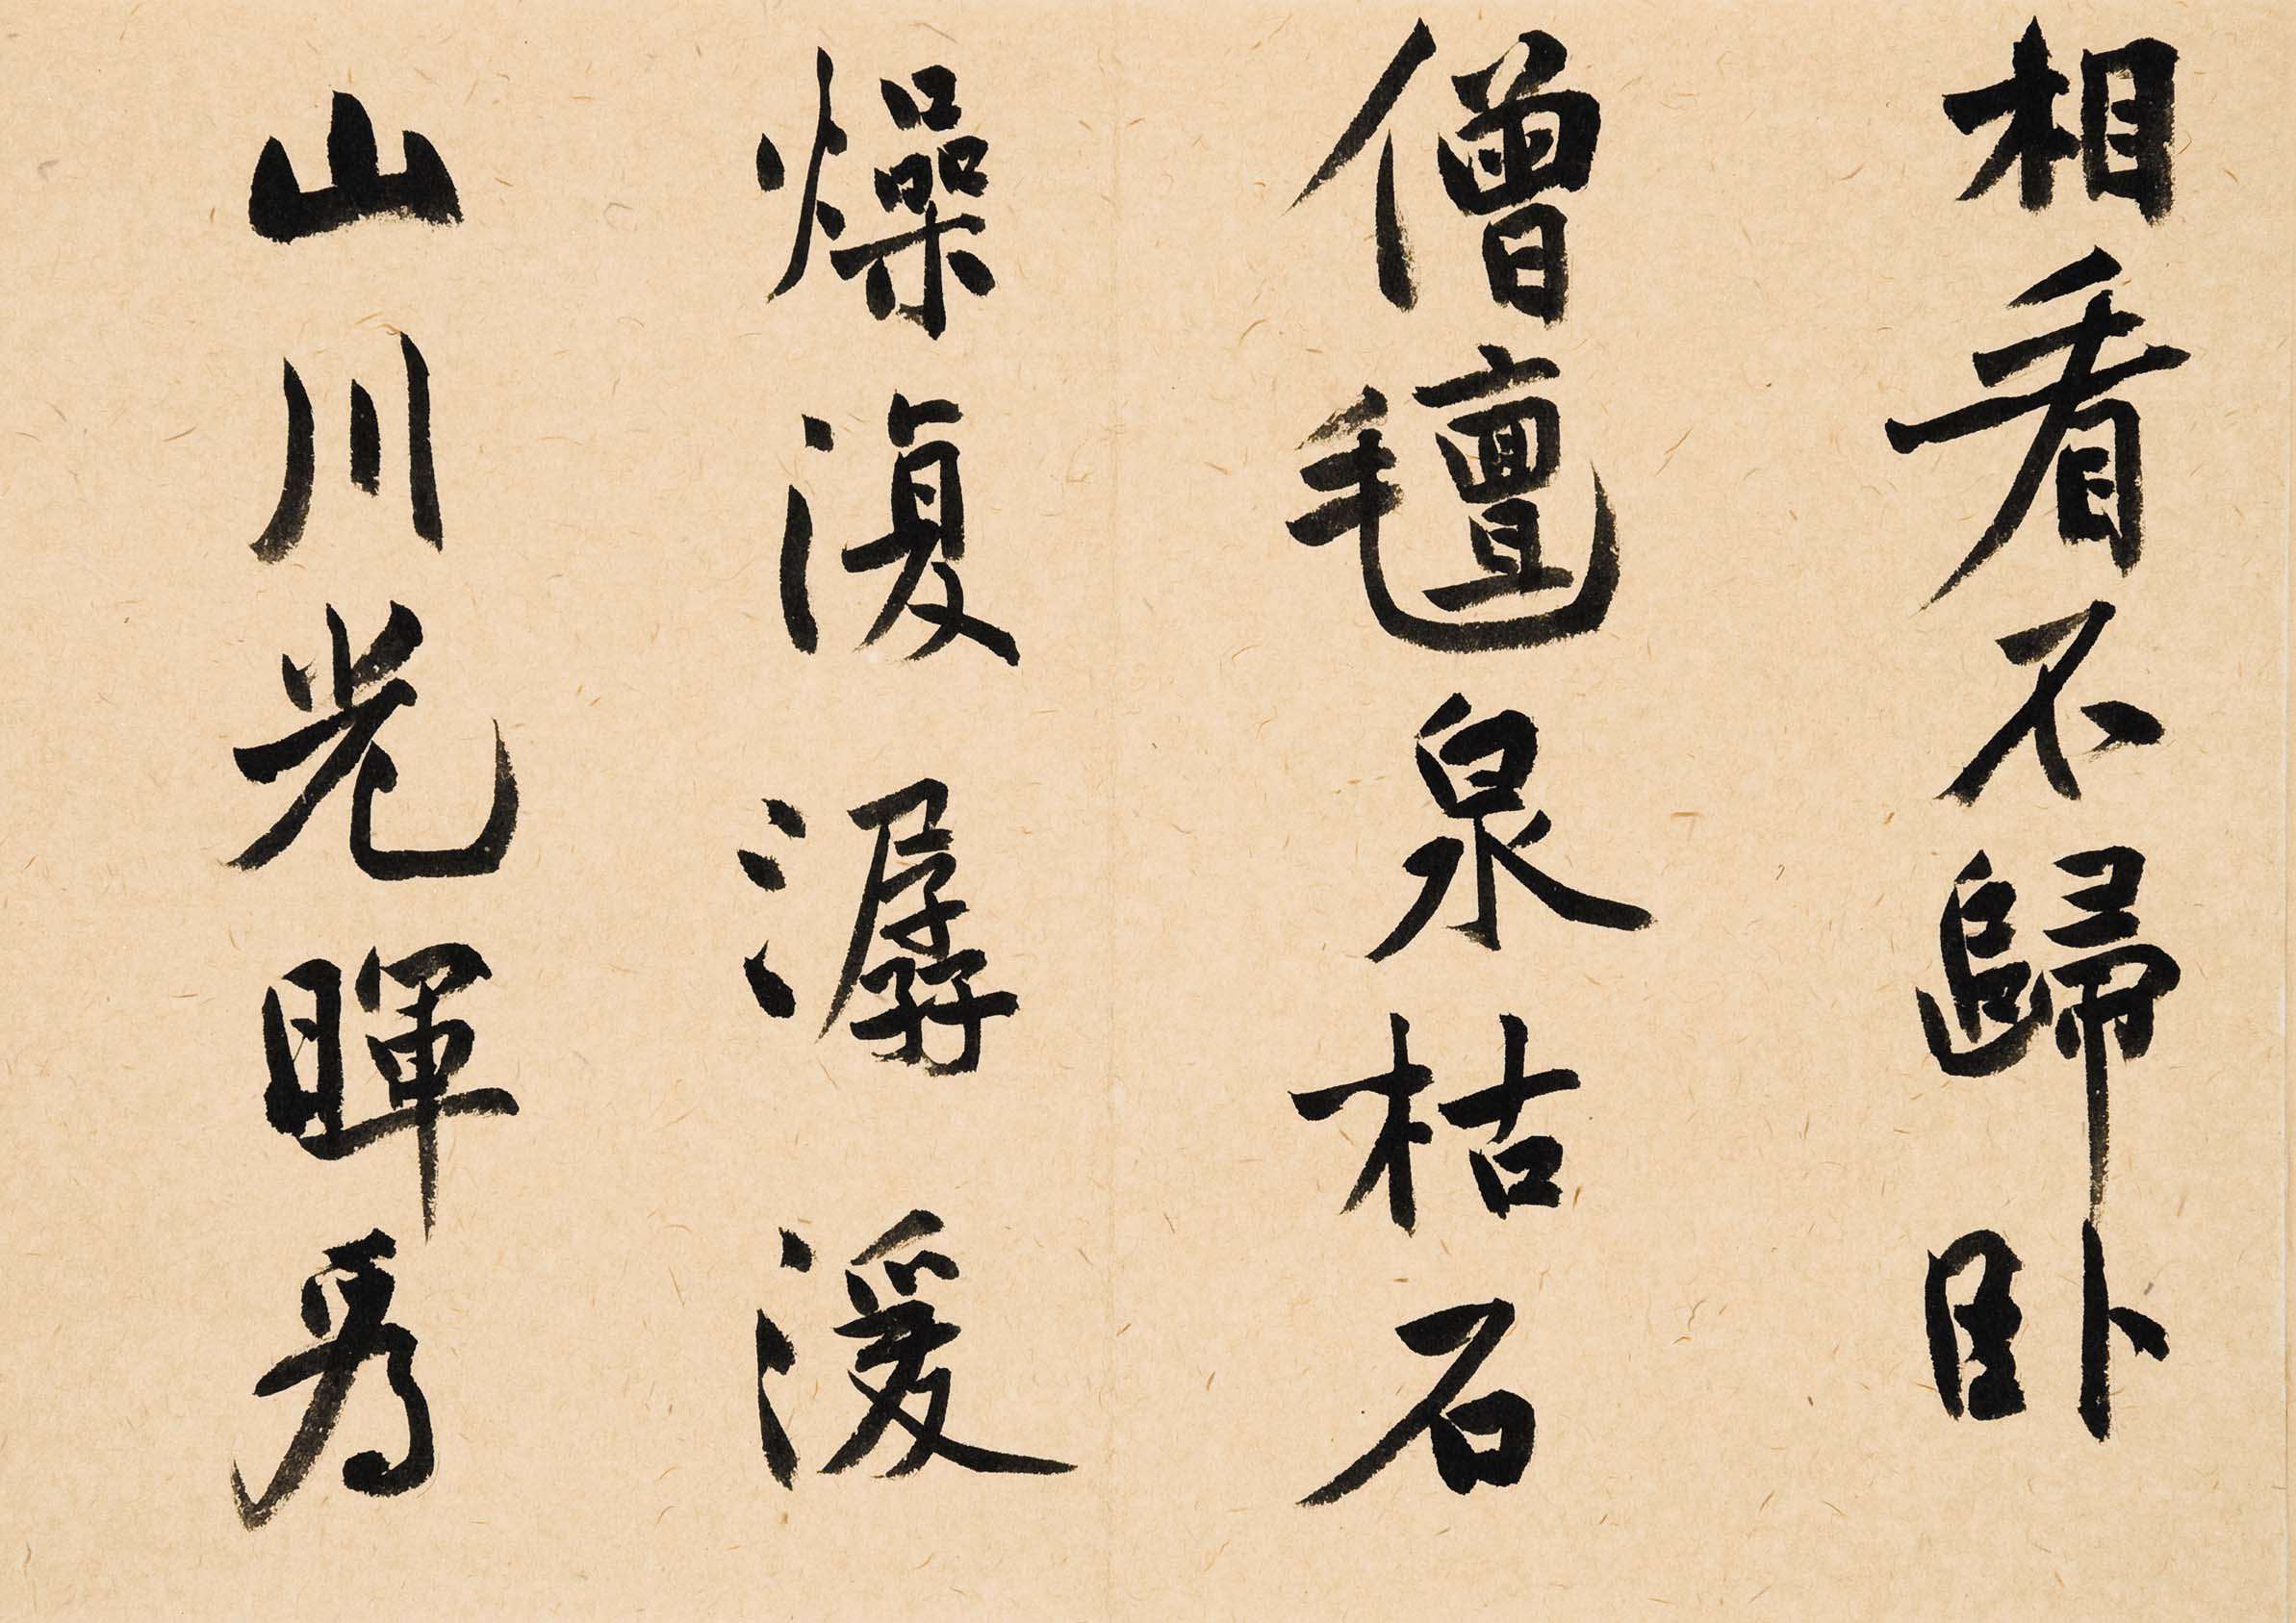 相看不歸卧
僧氊泉枯石
燥復潺湲
山川光暉為